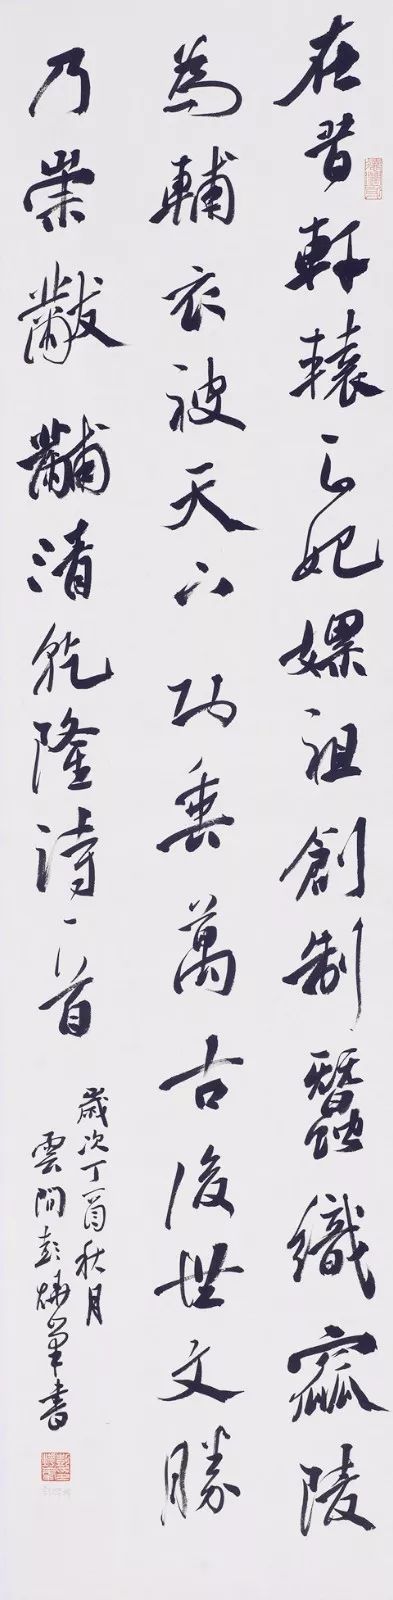 在昔軒轅之妃嫘祖創制蠶織寙陵
為輔衣被天下功垂萬古後世文勝
乃崇黻黼清乾隆詩一首
歲次丁酉秋月
雲間彭燁峯書